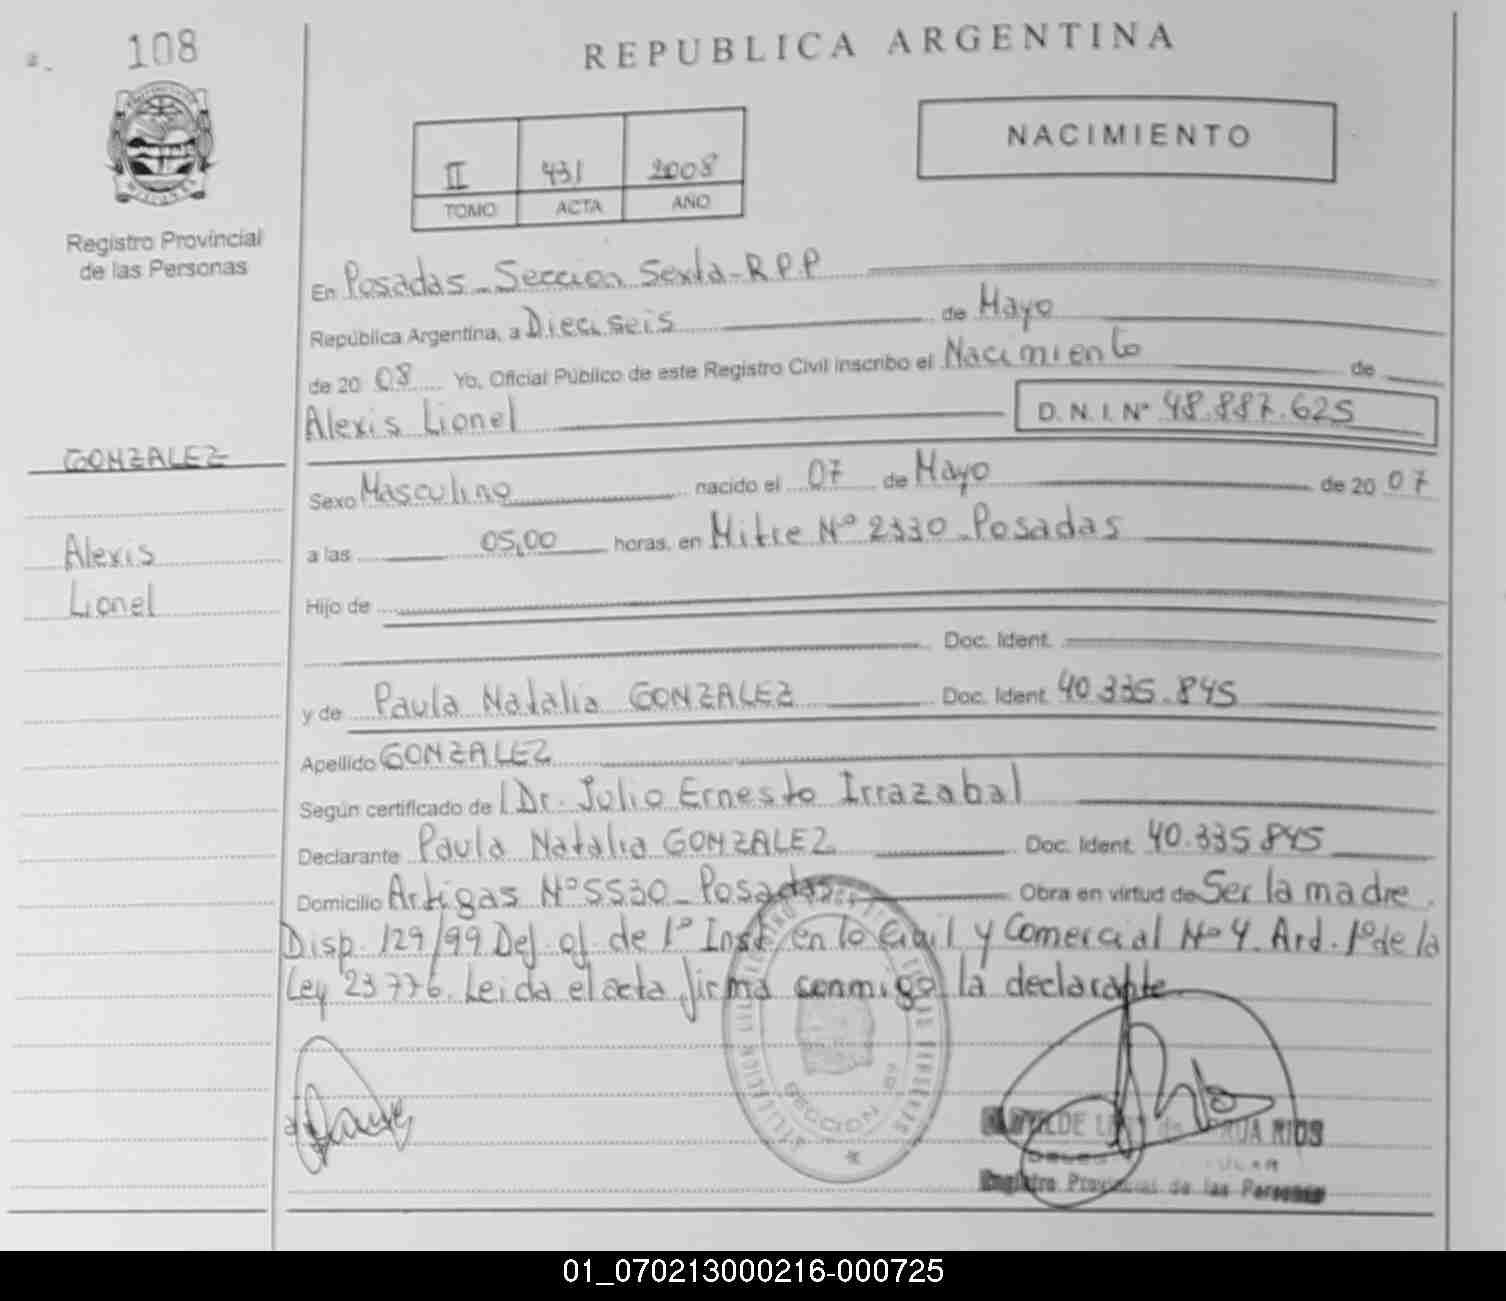 108
REPUBLICA ARGENTINA
NACIMIENTO
II 431 2008
TOMO ACTA AÑO
Registro Provincial
de las Personas
En Posadas - Seccion Sexta - R.P.P
República Argentina, a Dieciseis de Mayo
de 20 08 Yo, Oficial Público de este Registro Civil inscribo el Nacimiento de
Alexis Lionel D.N.I. Nº 48.887.625
GONZALEZ
Alexis
Lionel
Sexo Masculino nacido el 07 de Mayo de 20 07
a las 05,00 horas, en Mitre Nº 2330 - Posadas
Hijo de
Doc. Ident.
y de Paula Natalia GONZALEZ Doc. Ident. 40.335.845
Apellido GONZALEZ
Según certificado de Dr. Julio Ernesto Irrazabal
Declarante Paula Natalia GONZALEZ Doc. Ident. 40.335.845
Domicilio Artigas Nº 5530 - Posadas Obra en virtud de Ser la madre.
Disp. 129/99 Def. of. de 1º Inst. en lo Civil y Comercial Nº 4. Ard. 1º de la
Ley 23776. Leida el acta firma conmigo la declarante
SECCION
RIOS
Registro Provincial de las Personas
01_070213000216-000725